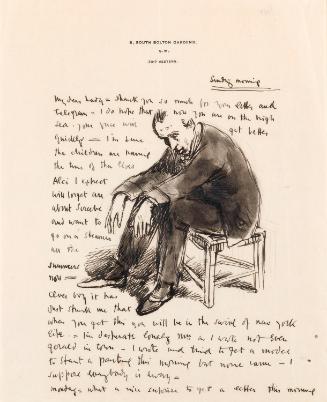 8, SOUTH BOLTON GARDENS,
S.W.
Sunday morning
My dear Lady – thank you so much for your letter and
telegram – I do hope that now you are on the high
sea. your face will get better
quickly – I'm sure
the children are having
the time of their lives
Alci I expect
will forget all
about
and want to
go on a steamer
all the
summers
now –
clever boy it has
just struck me that
when you get this you will be in the swirl of new york
life – I'm desperate lonely
– I wrote and tried to get a model
to start a painting this morning but none came – I
suppose everybody is away –
what a nice surprise to get a letter this morning